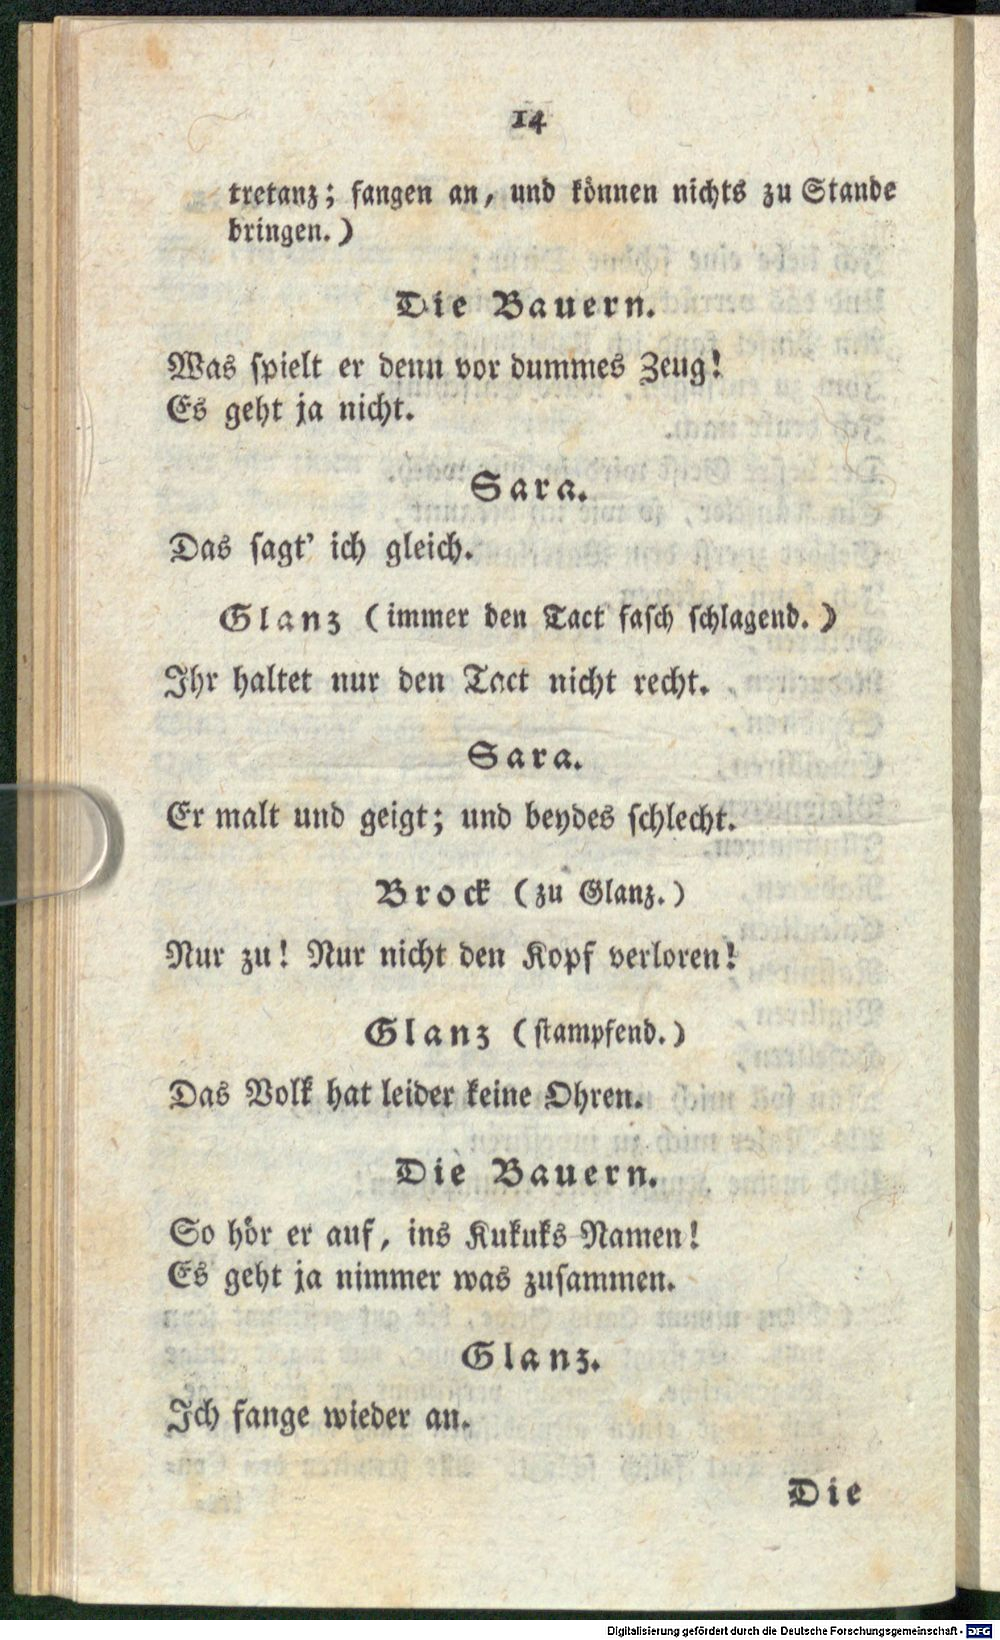 14
tretanz; fangen an, und können nichts zu Stande
bringen.)
Die Bauern.
Was spielt er denn vor dummes Zeug!
Es geht ja nicht.
Sara.
Das sagt' ich gleich.
Glanz (immer den Tact fasch schlagend.)
Ihr haltet nur den Tact nicht recht.
Sara.
Er malt und geigt; und beydes schlecht.
Brock (zu Glanz.)
Nur zu! Nur nicht den Kopf verloren!
Glanz (stampfend.)
Das Volk hat leider keine Ohren.
Die Bauern.
So hör er auf, ins Kukuks-Namen!
Es geht ja nimmer was zusammen.
Glanz.
Ich fange wieder an.
Die
Digitalisierung gefördert durch die Deutsche Forschungsgemeinschaft - DFG